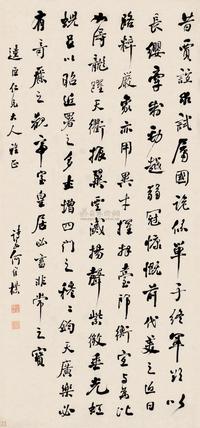 昔賈誼求試屬國詭係單于終軍欲以
長纓牽致勁越弱冠慷慨前代美之近日
路粹嚴象亦用異才擢拜臺郎衡宜與為比
如得龍躍天衢振翼雲漢揚聲紫微垂光虹
蜺足以昭近署之多士增四門之穆穆鈞天廣樂必
有奇麗之觀帝室皇居必蓄非常之寶
臣仁兄大人雅正
詩孫何維樸